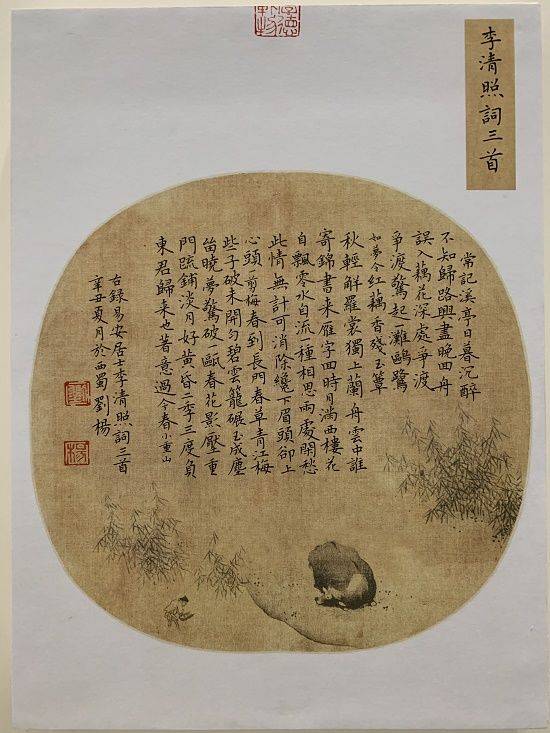 李清照詞三首
常記溪亭日暮沉醉
不知歸路興盡晚回舟
誤入藕花深處爭渡
爭渡驚起一灘鷗鷺
如夢令紅藕香殘玉簟
秋輕解羅裳獨上蘭舟雲中誰
寄錦書来雁字回時月滿西樓花
自飄零水自流一種相思兩處閑愁
此情無計可消除纔下眉頭卻上
心頭剪梅春到長門春草青江梅
些子破未開勻碧雲籠碾玉成塵
留曉夢驚破一甌春花影壓重
門疏鋪淡月好黃昏二年三度負
東君歸来也著意過今春小重山
右錄易安居士李清照詞三首
辛丑夏月於西蜀劉楊
劉
楊